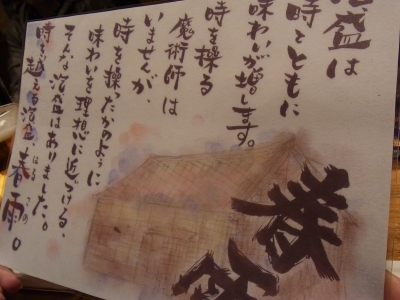 泡盛は
時とともに
味わいが増します。
時を操る
魔術師は
いませんが、
時を操たかのように
味わいを理想に近づける、
そんな泡盛はありました。
時を越える泡盛、はるさめの春雨。
春雨